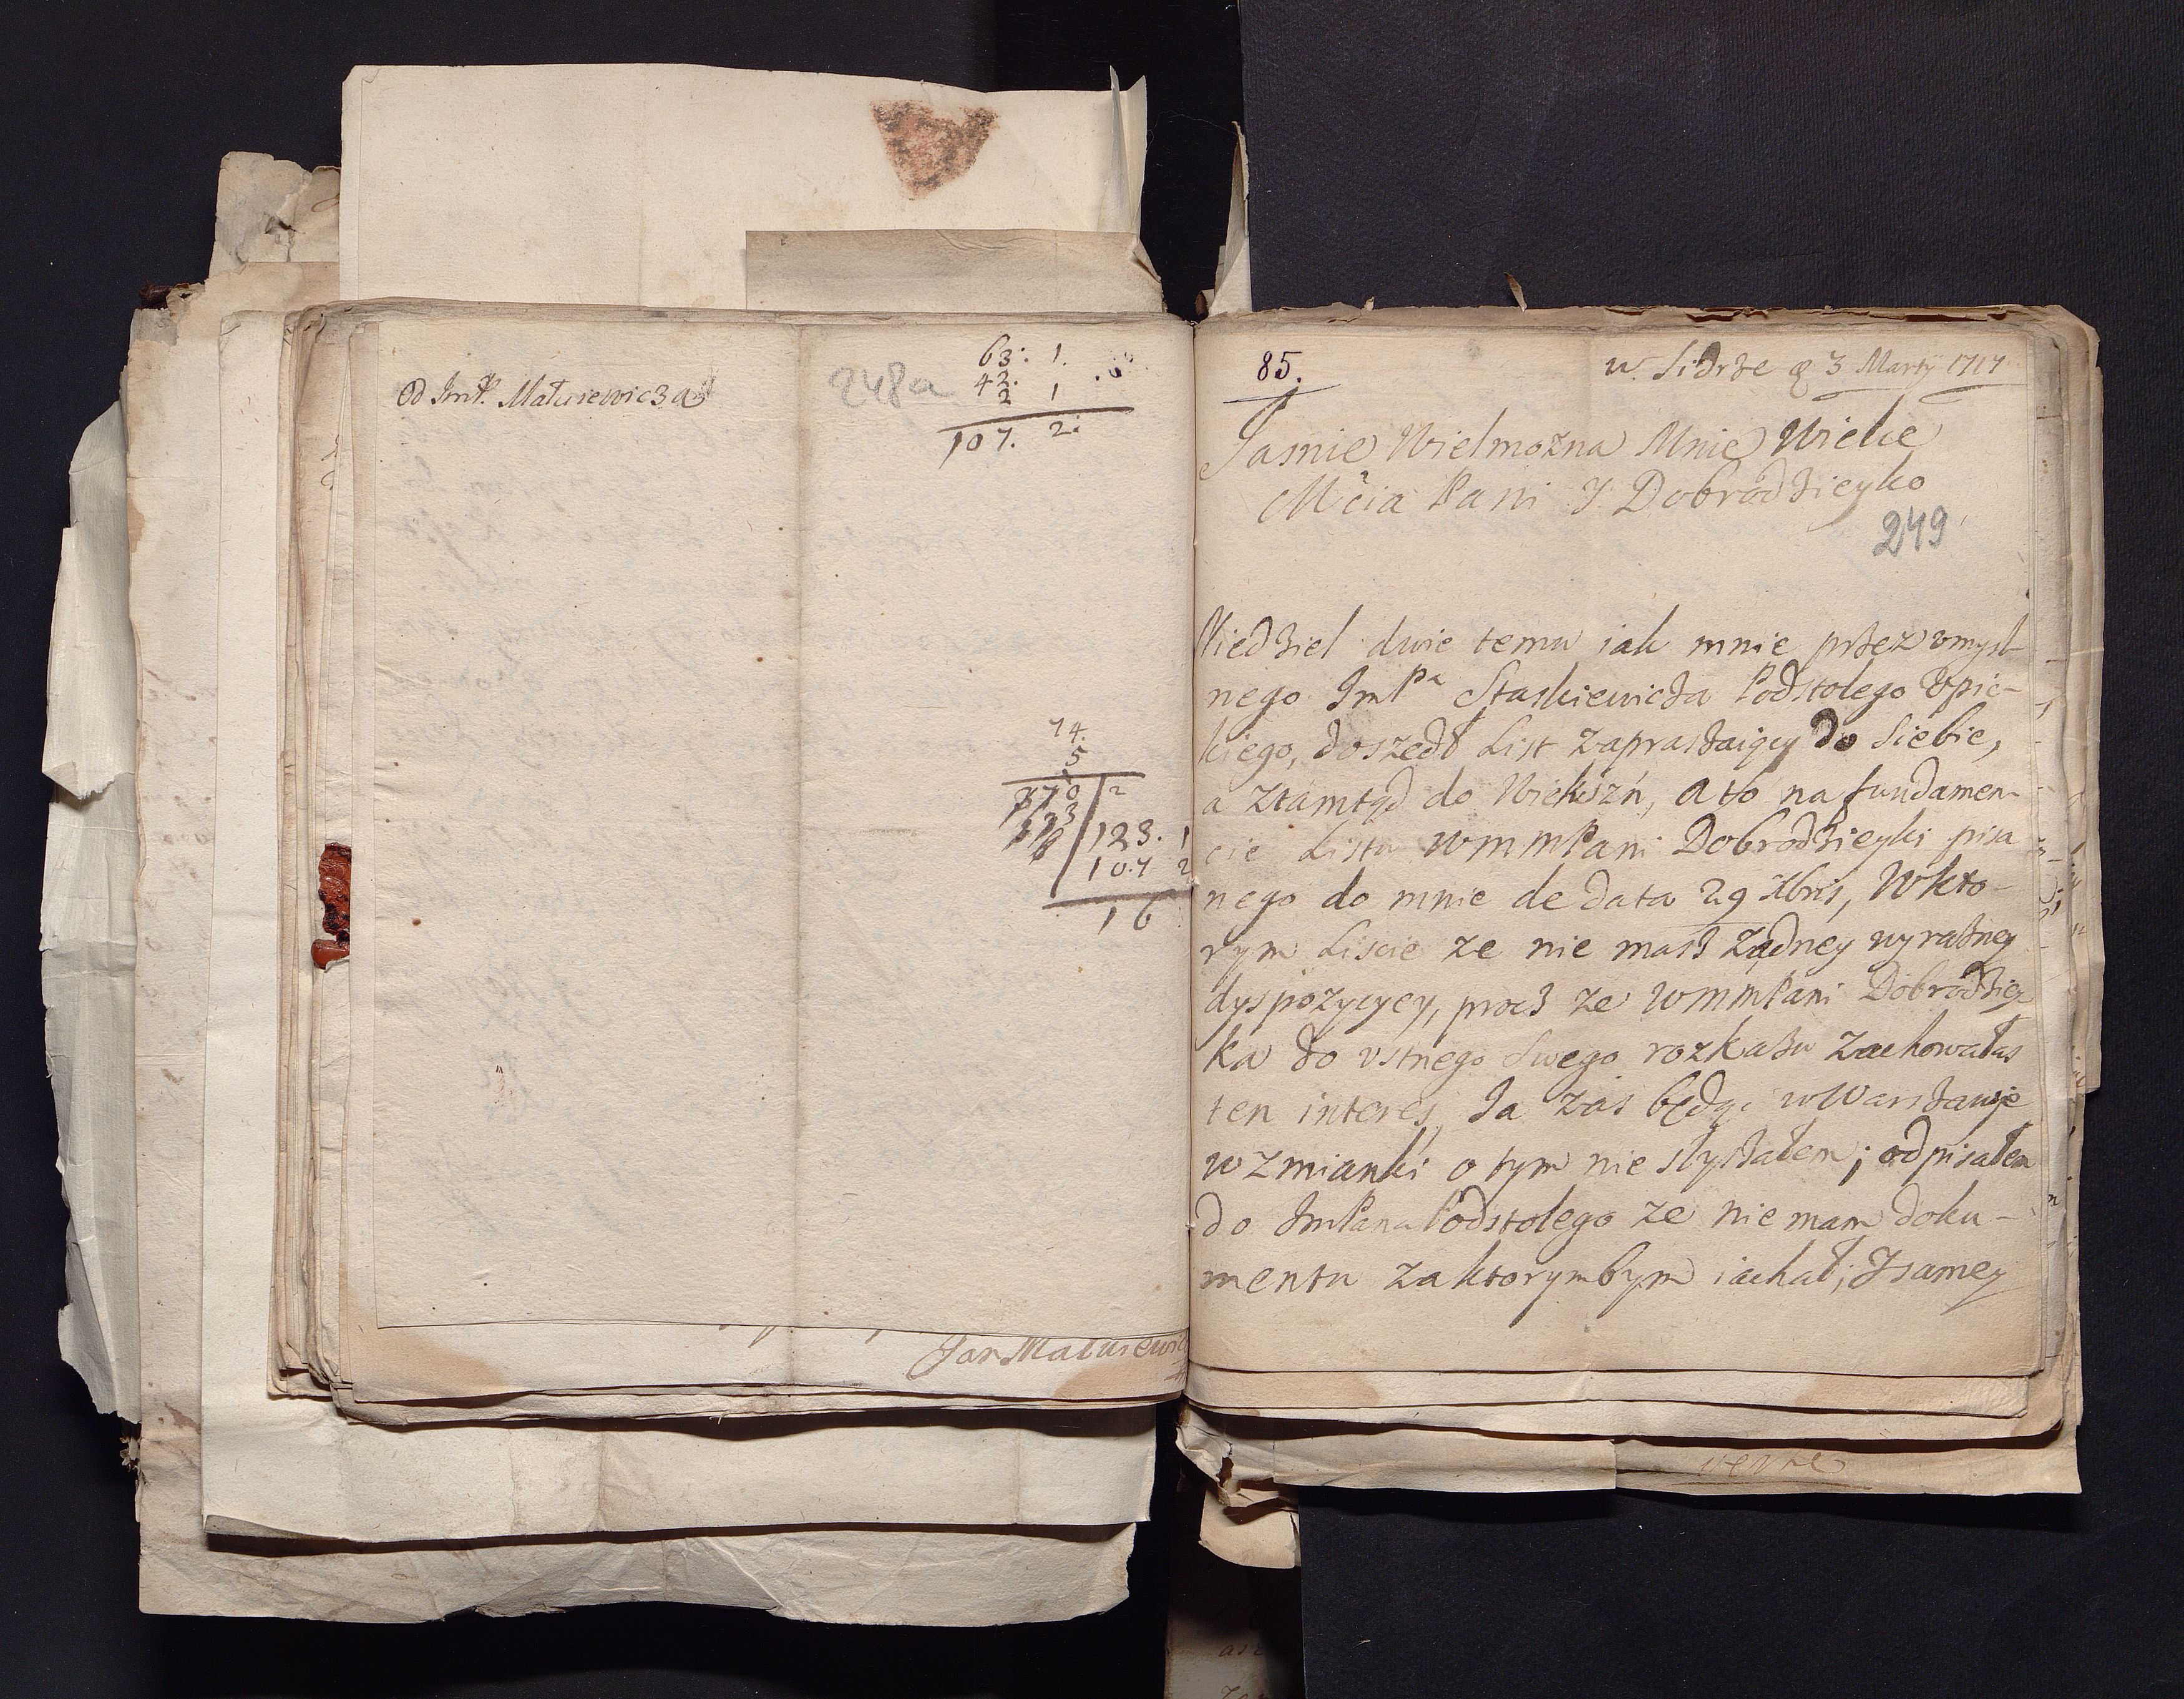 Od ImP. Matusiewicza
248a
63: 1.
42.
2 1
107. 2:
74.
5
370 2
123. 1
107 2
16
Jan Matusiewic
85.
w Sidrze 3 Marty 1717
Jasnie Wielmozna Mnie Wielce
Mcia Pani J Dobrodzieyko
249
Niedziel dwie temu iak mnie przez vmysl-
nego ImPa Staskiewicza Podstolego Vpic-
kiego, doszedł List zapraszaiący do siebie,
a ztamtąd do Wiekszń, a to na fundamen-
cie Listu WMMPani Dobrodzieyki pisa
nego do mnie de data 29 Xbris, W kto-
rym Liscie ze nie masz żadney wyrazney
dyspozycyey, procz ze WMMPani Dobrodziey
ka do vstnego Swego rozkazu zachowałas
ten interes, Ja zas będąc w Warszawie
wzmianki o tym nie słyszałem; odpisałem
do ImPana Podstolego ze nie mam doku-
mentu za ktorym bym iachał; J samey